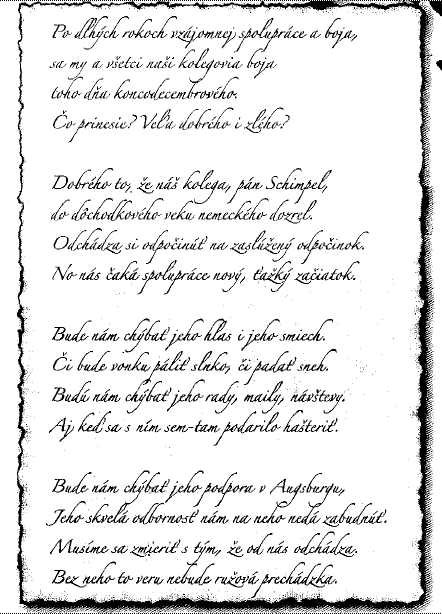 Po dlhých rokoch vzájomnej spolupráce a boja,
sa my a všetci naši kolegovia boja
toho dňa koncodecembrového.
Čo prinesie? Veľa dobrého i zlého?
Dobrého to, že náš kolega, pán Schimpel,
do dôchodkového veku nemeckého dozrel.
Odchádza si odpočinúť na zaslúžený odpočinok.
No nás čaká spolupráce nový, ťažký začiatok.
Bude nám chýbať jeho hlas i jeho smiech.
Či bude vonku páliť slnko, či padať sneh.
Budú nám chýbať jeho rady, maily, návštevy.
Aj keď sa s ním sem-tam podarilo hašteriť.
Bude nám chýbať jeho podpora v Augsburgu,
Jeho skvelá odbornosť nám na neho nedá zabudnúť.
Musíme sa zmieriť s tým, že od nás odchádza.
Bez neho to veru nebude ružová prechádzka.